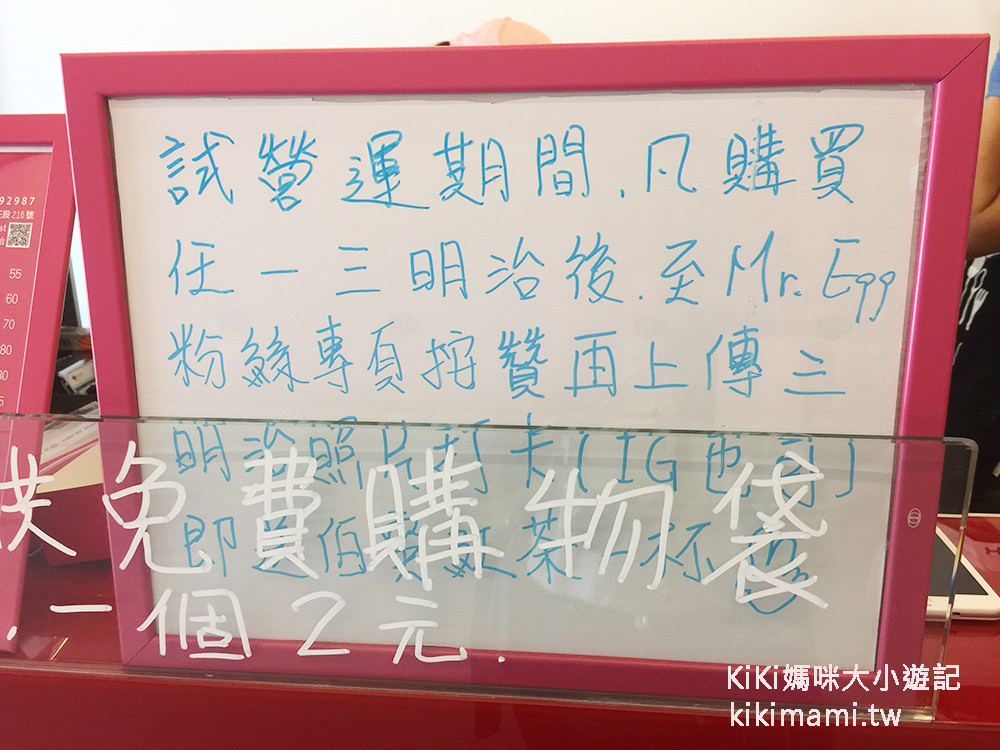 試營運期間,凡購買
任一三明治後,至Mr. Egg
粉絲專頁按贊再上傳三
明治照片打卡(IG也可)
即送伯爵紅茶一杯
供免費購物袋
,一個2元.
92987
段216號
55
60
70
80
KiKi媽咪大小遊記
kikimami.tw